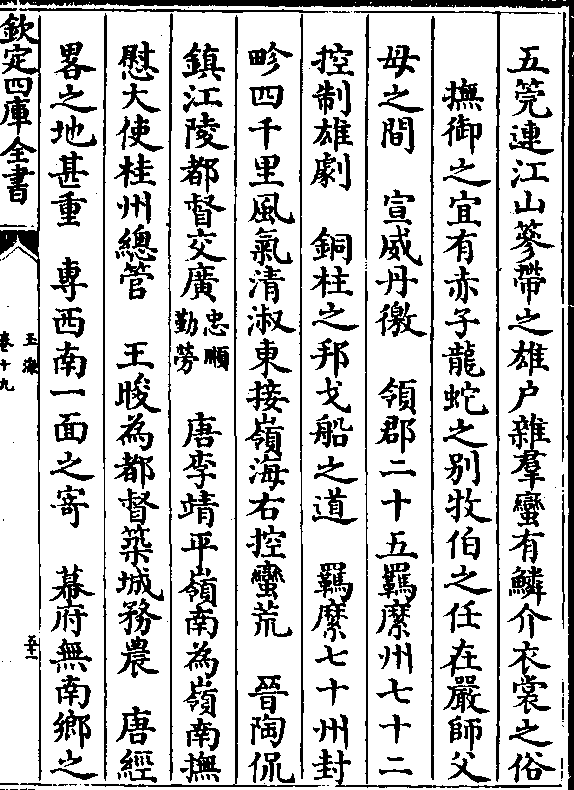 五筦連江山蔘帶之雄户雜羣蠻有鱗介衣裳之俗
撫御之宜有赤子龍蛇之别牧伯之任在嚴師父
母之間　宣威丹徼　領郡二十五羈縻州七十二
控制雄劇　銅柱之邦戈船之道　羈縻七十州封
畛四千里風氣清淑東接嶺海右控蠻荒　晉陶侃
鎮江陵都督交廣忠順勤勞　唐李靖平嶺南為嶺南撫
慰大使桂州總管　王晙為都督築城務農　唐經
畧之地甚重　專西南一面之寄　幕府無南鄉之
欽定四庫全書
玉海
卷十九